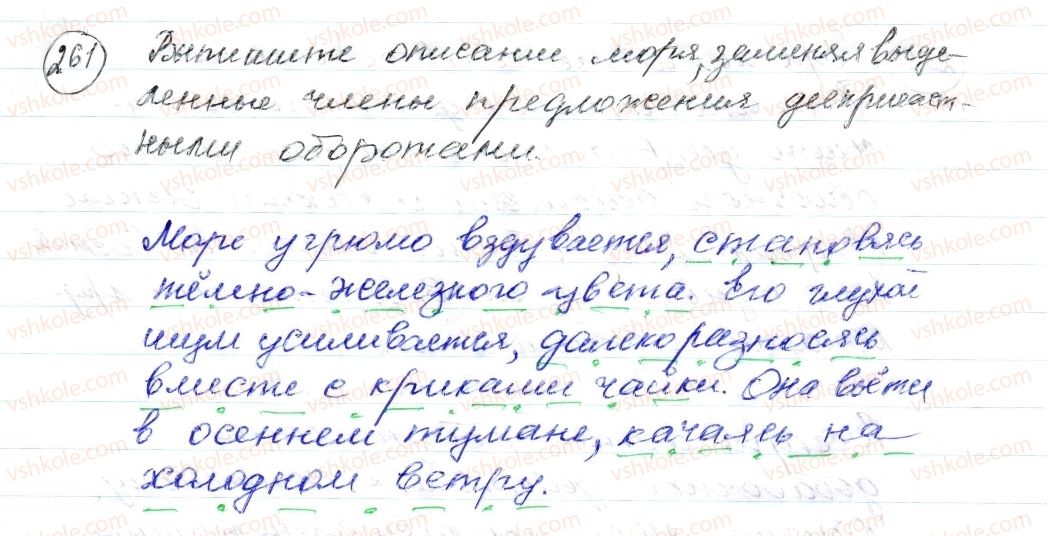 261 Выпишите описание моря, заменяя выде-
ленные члены предложения деепричаст-
ными оборотами.
Море угрюмо вздувается, становясь
тёмно-железного цвета. Его глухой
шум усиливается, далеко разносясь
вместе с криками чайки. Она
в осеннем тумане, качаясь на
холодном ветру.